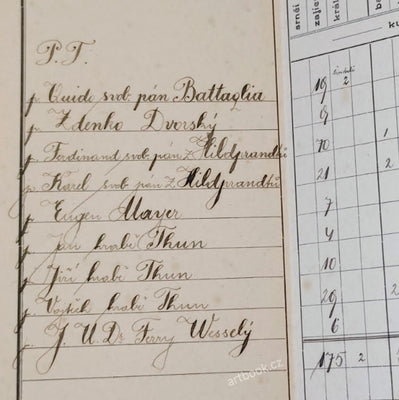 P. T.
p. Guido svob. pán Battaglia
p. Zdenko Dvorský
p. Ferdinand svob. pán z Hildprandtů
p. Karel svob. pán z Hildprandtů
p. Eugen Mayer
p. Jan hrabě Thun
p. Jiří hrabě Thun
p. Vojtěch hrabě Thun
p. J. U. Dr. Ferry Wesselý
srnčí
zajíc
král
ba
ku
19 2
9
70 1
21 2
7
4
10
29 2
6
175 2
artbook.cz